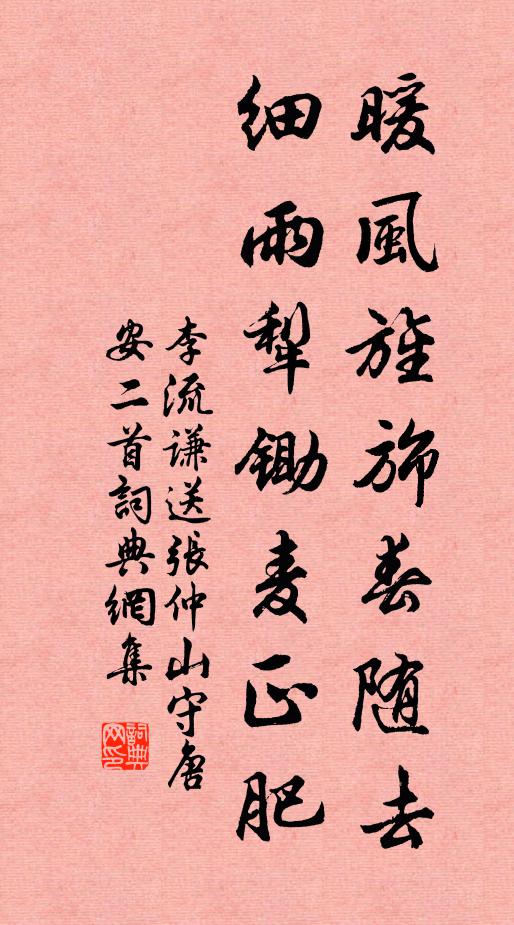 暖風旌旆春隨去
細雨犁鋤麦正肥
李流謙送張仲山守唐
安二首詞典網集
詞典
网印